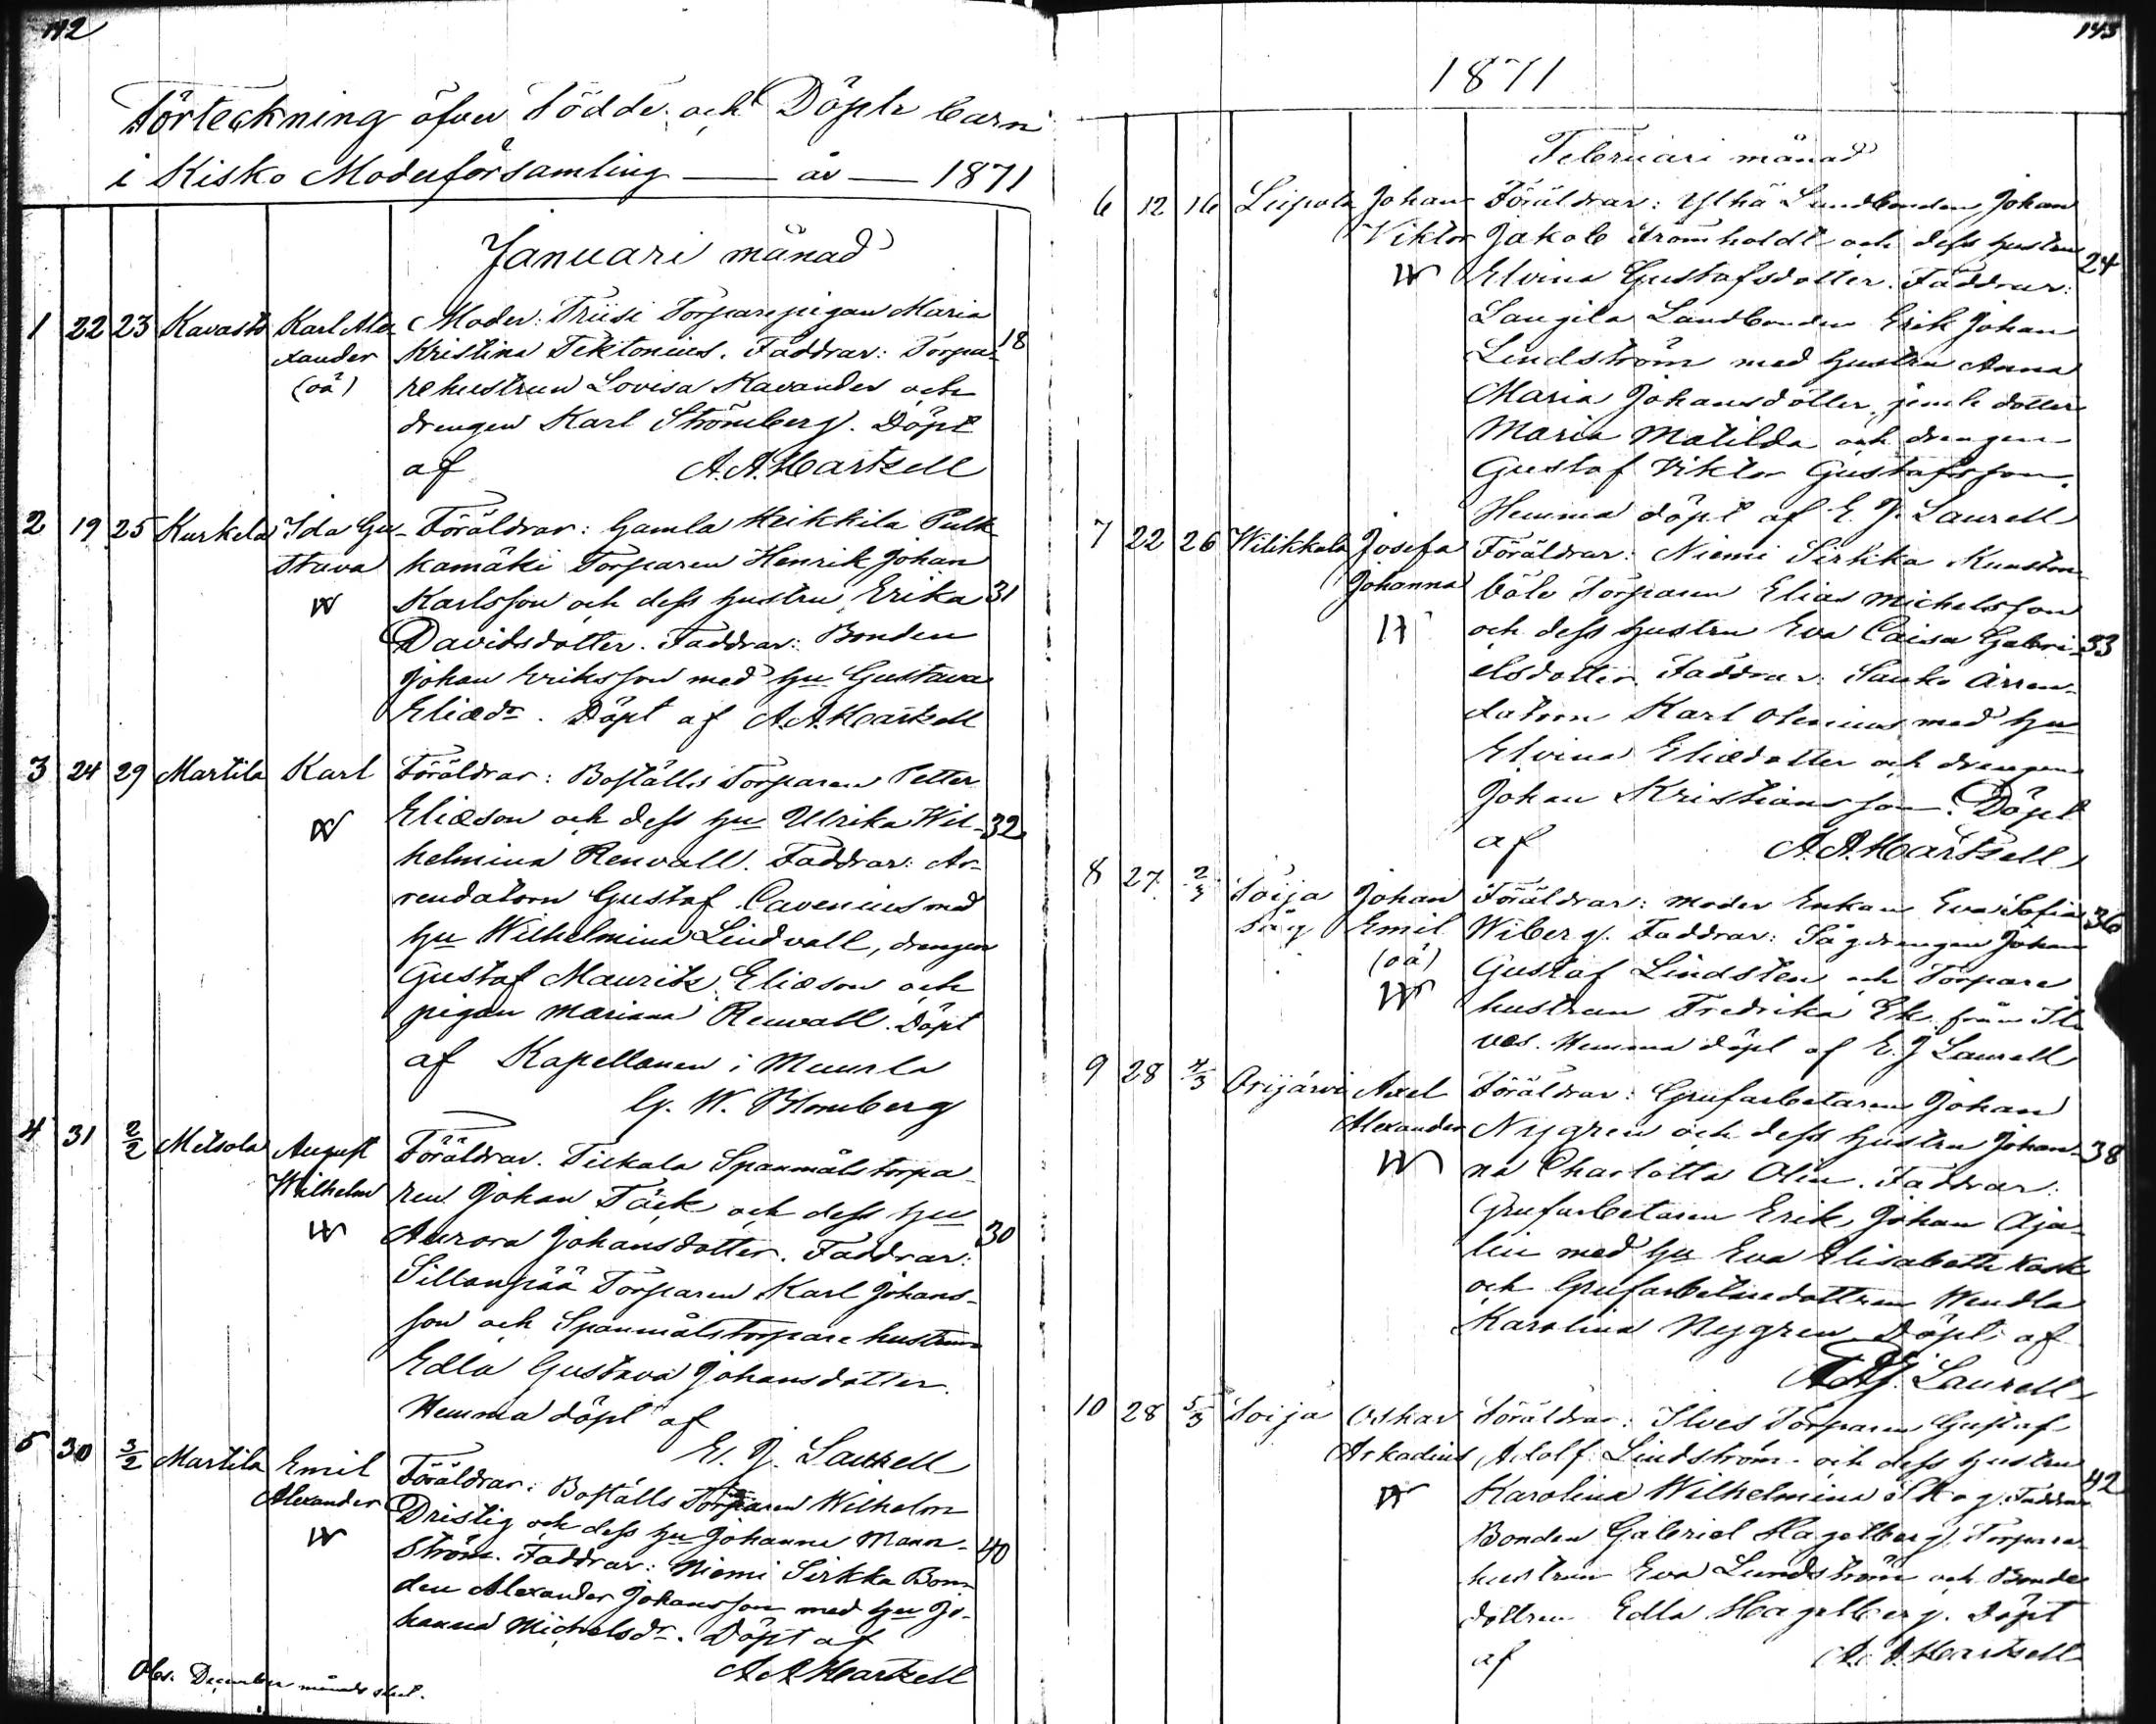 142
Förteckning öfver Födde och Döpte barn
i Kisko Moderförsamling — år — 1871
Januari månad
1 22 23 Kavasto Karl Alexander (oä) Moder: Triisi Torparepigan Maria
Kristina Tektonius. Faddrar: Torpa- 18
rehustrun Lovisa Kavander och
drengen Karl Strömberg. Döpt
af A. A. Hartzell
2 19 25 Kurkela Ida Gustava Föräldrar: Gamla Heikkila Pulk
kamäki Torparen Henrik Johan
Karlsson och dess hustru Erika 31
Davidsdotter. Faddrar: Bonden
Johan Eriksson med hu Gustava
Eliædr. Döpt af A. A. Hartzell
3 24 29 Martila Karl Föräldrar: Boställs Torparen Petter
Eliæson och dess hu Ulrika Wil- 32
helmina Renvall. Faddrar: Ar-
rendatorn Gustaf Cavenius med
hu Wilhelmina Lindvall, drengen
Gustaf Mauritz Eliæson och
pigan Mariana Renvall. Döpt
af Kapellanen i Muurla
G. W. Blomberg
4 31 2/2 Metsola August Wilhelm Föräldrar. Tiekala Spanmålstorpa-
ren Johan Täck och dess hu
Aurora Johansdotter. Faddrar: 30
Sillanpää Torparen Karl Johans-
son och Spanmålstorpare hustrun
Edla Gustava Johansdotter.
Hemma döpt af
E. J. Laurell
5 30 3/2 Martila Emil Alexander Föräldrar: Boställs Torparen Wilhelm
Dristig och dess hu Johanna Mann- 40
ström. Faddrar: Niemi Sirkka Bon-
den Alexander Johansson med hu Jo-
hanna Michelsdr. Döpt af
A. A. Hartzell
Obs. December månads slut.
143
1871
Februari månad
6 12 16 Leipola Johan Viktor Föräldrar: Ylhä Landbonden Johan
Jakob Strömholdt och dess hustru 24
Elvina Gustafsdotter. Faddrar:
Laugila Landbonden Erik Johan
Lindström med hustru Anna
Maria Johansdotter, jemte dotter
Maria Matilda och drengen
Gustaf Viktor Gustafsson.
Hemma döpt af E. J. Laurell
7 22 26 Wilikkala Josefa Johanna Föräldrar: Niemi Sirkka
böle Torparen Elias Michelsson
och dess hustru Eva Caisa Gabri- 33
elsdotter. Faddrar: Sauko Arren-
datorn Karl Olenius med hu
Elvina Eliædotter och drengen
Johan Kristiansson. Döpt
af A. A. Hartzell
8 27 2/3 Toija såg Johan Emil (oä) Föräldrar: moder Enkan Eva Sofia 36
Wiberg. Faddrar: Sågdrengen Johan
Gustaf Lindsten och Torpare
hustrun Fredrika Ek från Il-
ves. Hemma döpt af E. J. Laurell
9 28 4/3 Orijärvi Axel Alexander Föräldrar: Grufarbetaren Johan
Nygren och dess hustru Johan- 38
na Charlotta Olin. Faddrar:
Grufarbetaren Erik Johan Aja-
lin med hu Eva Elisabeth Kask
och Grufarbetaredottren Wendla
Karolina Nygren. Döpt af
E. J. Laurell
10 28 5/3 Toija Oskar Arkadius Föräldrar: Ilves Torparen Gustaf
Adolf Lindström och dess hustru 42
Karolina Wilhelmina Skog. Faddrar
Bonden Gabriel Hagelberg, Torpare
hustrun Eva Lundström och Bonde
dottren Edla Hagelberg. Döpt
af A. A. Hartzell